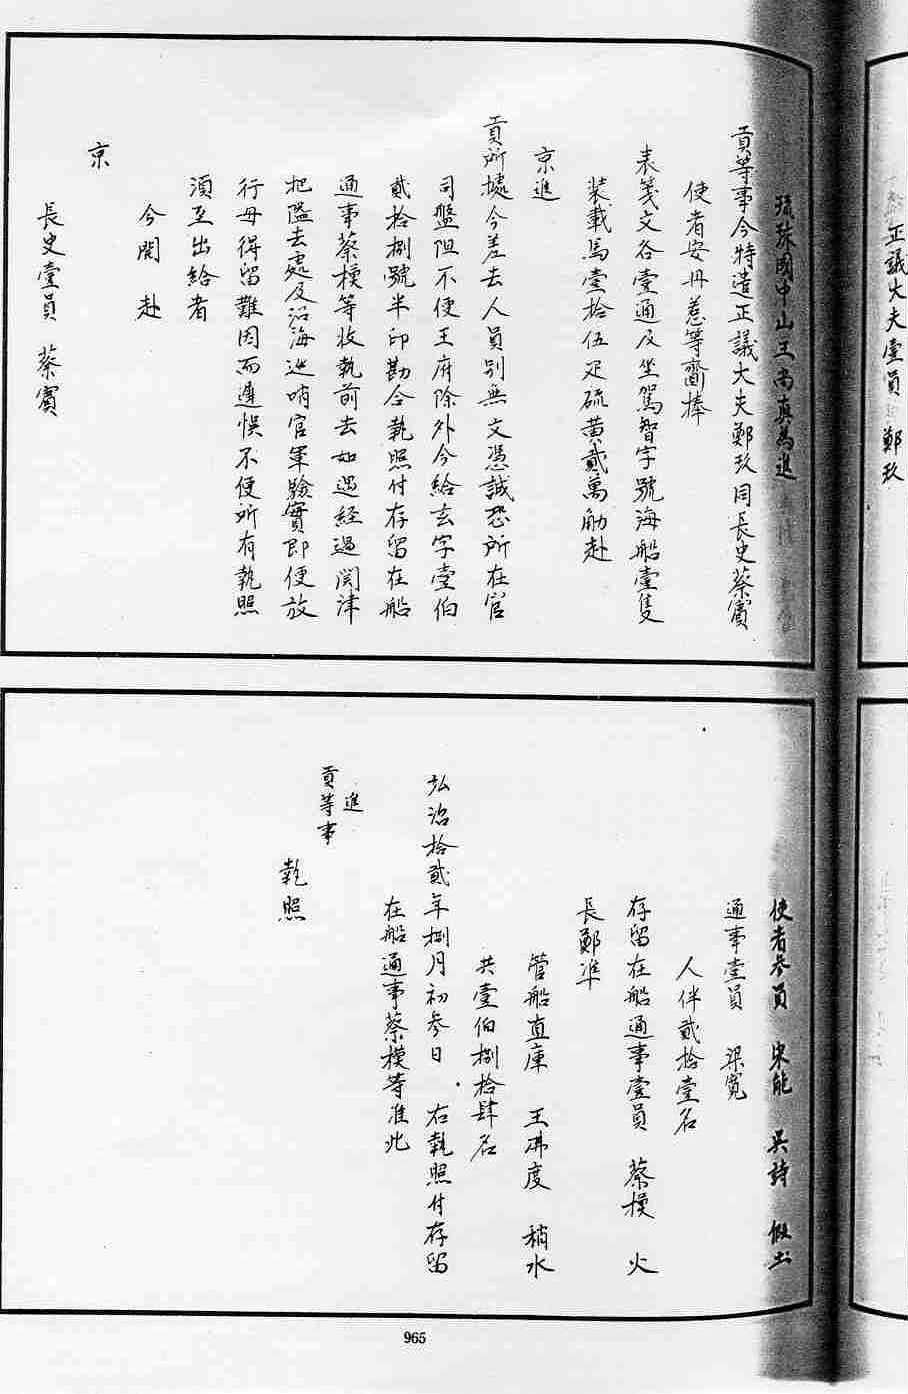 正議大夫壹員 鄭玖
琉球國中山王尚真為進
貢等事今特遣正議大夫鄭玖同長史蔡賓
使者安丹惹等齎捧
表箋文各壹通及坐駕智字號海船壹隻
裝載馬壹拾伍疋硫黄貳萬觔赴
京進
貢所據今差去人員别無文憑誠恐所在官
司盤阻不便王府除外今給玄字壹伯
貳拾捌號半印勘合執照付存留在船
通事蔡樸等收執前去如遇經過関津
把隘去處及沿海巡哨官軍驗實即便放
行毋得留難因而遲悮不便所有執照
須至出給者
今開 赴
京
長史壹員 蔡賓
使者參員 宋能 吴詩
通事壹員 梁寬
人伴貳拾壹名
存留在船通事壹員 蔡樸 火
長鄭準
管船直庫 王沸度 稍水
共壹伯捌拾肆名
弘治拾貳年捌月初參日 右執照付存留
在船通事蔡樸等准此
進
貢等事
執照
965